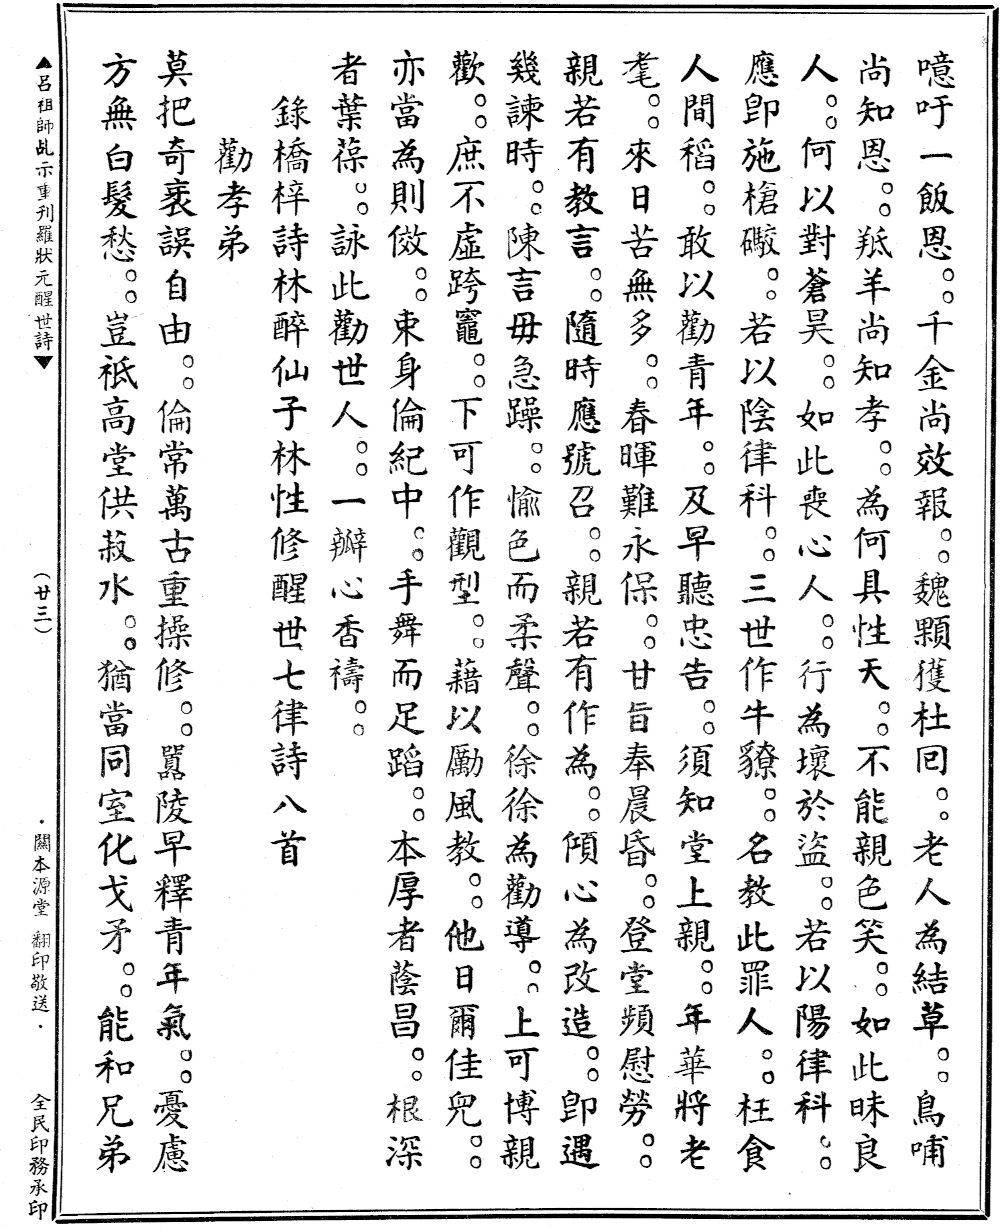 噫吁一飯恩。。千金尚效報。。魏顆獲杜回。。老人為結草。。鳥哺
尚知恩。。羝羊尚知孝。。為何具性天。。不能親色笑。。如此昧良
人。。何以對蒼昊。。如此喪心人。。行為壞於盜。。若以陽律科。。
應卽施槍礮。。若以陰律科。。三世作牛獠。。名教此罪人。。枉食
人間稻。。敢以勸青年。。及早聽忠告。。須知堂上親。。年華將老
耄。。來日苦無多。。春暉難永保。。甘旨奉晨昏。。登堂頻慰勞。。
親若有教言。。隨時應號召。。親若有作為。。傾心為改造。。卽遇
幾諫時。。陳言毋急躁。。愉色而柔聲。。徐徐為勸導。。上可博親
歡。。庶不虛跨竈。。下可作觀型。。藉以勵風教。。他日爾佳兒。。
亦當為則傚。。束身倫紀中。。手舞而足蹈。。本厚者蔭昌。。根深
者葉葆。。詠此勸世人。。一瓣心香禱。。
錄橋梓詩林醉仙子林性修醒世七律詩八首
勸孝弟
莫把奇衺誤自由。。倫常萬古重操修。。囂陵早釋青年氣。。憂慮
方無白髮愁。。豈祗高堂供菽水。。猶當同室化戈矛。。能和兄弟
▲呂祖師乩示重刊羅狀元醒世詩▼
(廿三)
·關本源堂 翻印敬送·
全民印務承印